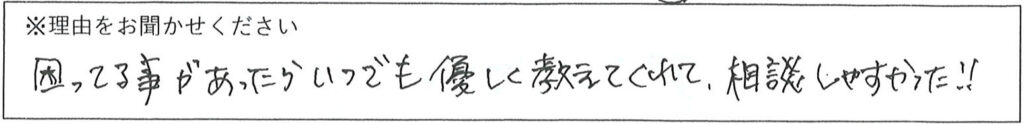 ※理由をお聞かせください
困ってる事があったらいつでも優しく教えてくれて、相談しやすかった!!